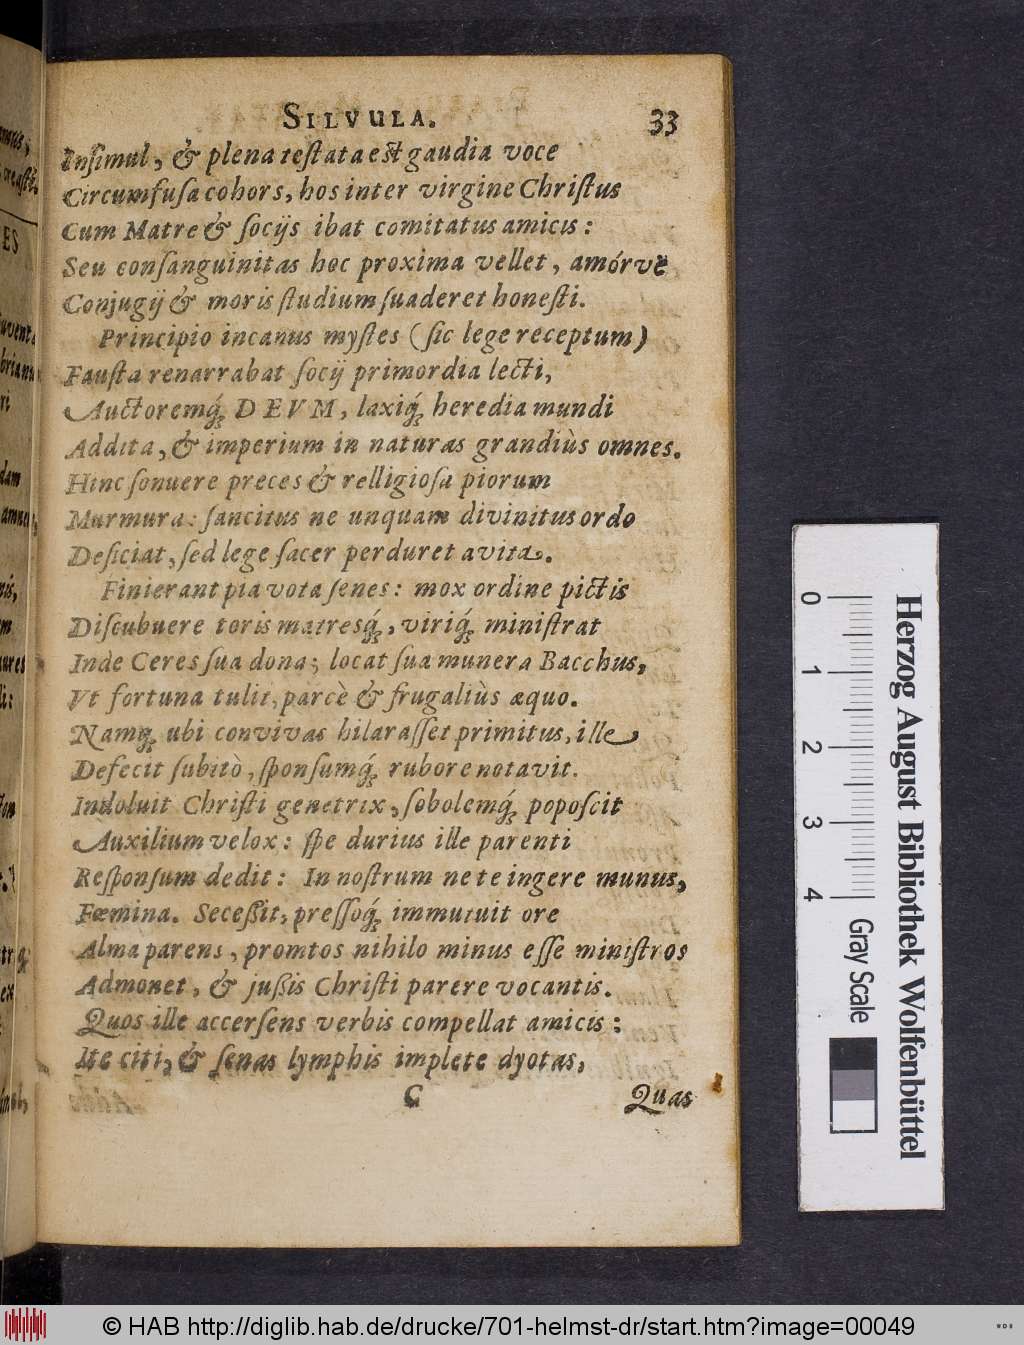 SILVULA. 33
Insimul, & plena testata est gaudia voce
Circumfusa cohors, hos inter virgine Christus
Cum Matre & socijs ibat comitatus amicis:
Seu consanguinitas hoc proxima vellet, amórve
Conjugij & moris studium suaderet honesti.
Principio incanus mystes (sic lege receptum)
Fausta renarrabat socij primordia lecti,
Auctoremq́ꝫ DEVM, laxiq́ꝫ heredia mundi
Addita, & imperium in naturas grandiùs omnes.
Hinc sonuere preces & relligiosa piorum
Murmura: sancitus ne unquam divinitus ordo
Deficiat, sed lege sacer perduret avita.
Finierant pia vota senes: mox ordine pictis
Discubuere toris matresq́ꝫ, viriq́ꝫ ministrat
Inde Ceres sua dona; locat sua munera Bacchus,
Vt fortuna tulit, parcè & frugaliùs æquo.
Namqꝫ ubi convivas hilarasset primitus, ille
Defecit subitò, sponsumq́ꝫ rubore notavit.
Indoluit Christi genetrix, sobolemq́ꝫ poposcit
Auxilium velox: spe durius ille parenti
Responsum dedit: In nostrum ne te ingere munus,
Fœmina. Secessit, pressoq́ꝫ immutuit ore
Alma parens, promtos nihilo minus esse ministros
Admonet, & jußis Christi parere vocantis.
Quos ille accersens verbis compellat amicis:
Ite citi, & senas lymphis implete dyotas,
C Quas
0 1 2 3 4
Gray Scale
Herzog August Bibliothek Wolfenbüttel
© HAB http://diglib.hab.de/drucke/701-helmst-dr/start.htm?image=00049